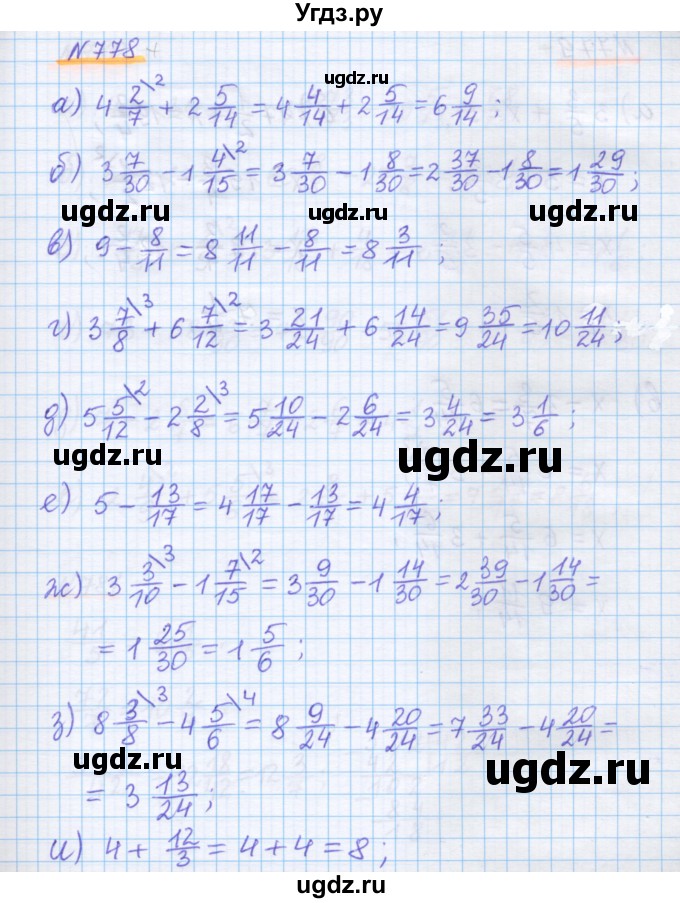 Угдз.ру
N 778
а) 4 2/7\2 + 2 5/14 = 4 4/14 + 2 5/14 = 6 9/14 ;
ugdz.ru ugdz.ru
б) 3 7/30 - 1 4/15\2 = 3 7/30 - 1 8/30 = 2 37/30 - 1 8/30 = 1 29/30 ;
ugdz.ru ugdz.ru ugdz.ru
в) 9 - 8/11 = 8 11/11 - 8/11 = 8 3/11 ;
ugdz.ru
г) 3 7/8\3 + 6 7/12\2 = 3 21/24 + 6 14/24 = 9 35/24 = 10 11/24 ;
ugdz.ru
д) 5 5/12\2 - 2 2/8\3 = 5 10/24 - 2 6/24 = 3 4/24 = 3 1/6 ;
ugdz.ru ugdz.ru
е) 5 - 13/17 = 4 17/17 - 13/17 = 4 4/17 ;
ugdz.ru
ж) 3 3/10\3 - 1 7/15\2 = 3 9/30 - 1 14/30 = 2 39/30 - 1 14/30 =
= 1 25/30 = 1 5/6 ;
ugdz.ru
з) 8 3/8\3 - 4 5/6\4 = 8 9/24 - 4 20/24 = 7 33/24 - 4 20/24 =
ugdz.ru ugdz.ru
= 3 13/24 ;
ugdz.ru
и) 4 + 12/3 = 4 + 4 = 8 ;
ugdz.ru